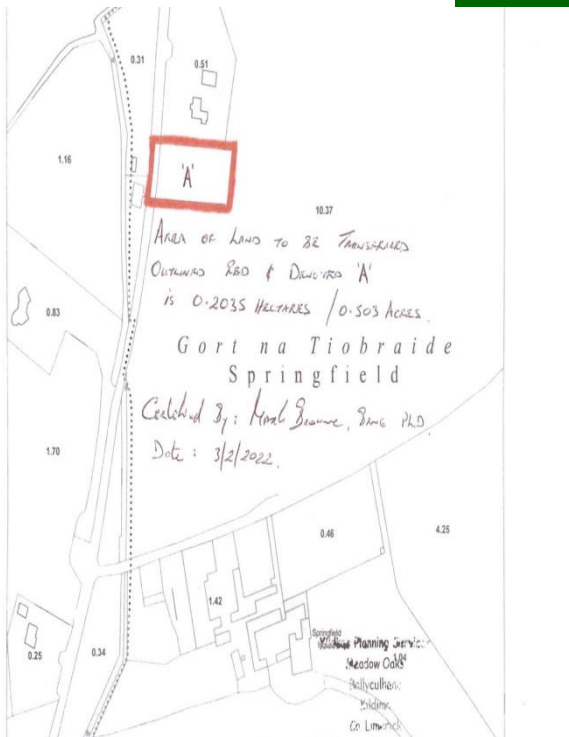 0.31
0.51
1.16
'A'
10.37
AREA OF LAND TO BE TRANSFERRED
OUTLINED RED & DENOTED 'A'
is 0.2035 HECTARES / 0.503 ACRES.
0.83
Gort na Tiobraide
Springfield
Certified By: Mark Browne, BEng PhD
Date: 3/2/2022.
1.70
0.46
4.25
1.42
Springfield
Planning Service
Meadow Oaks
0.25
0.34
Kildimo
Co. Limerick